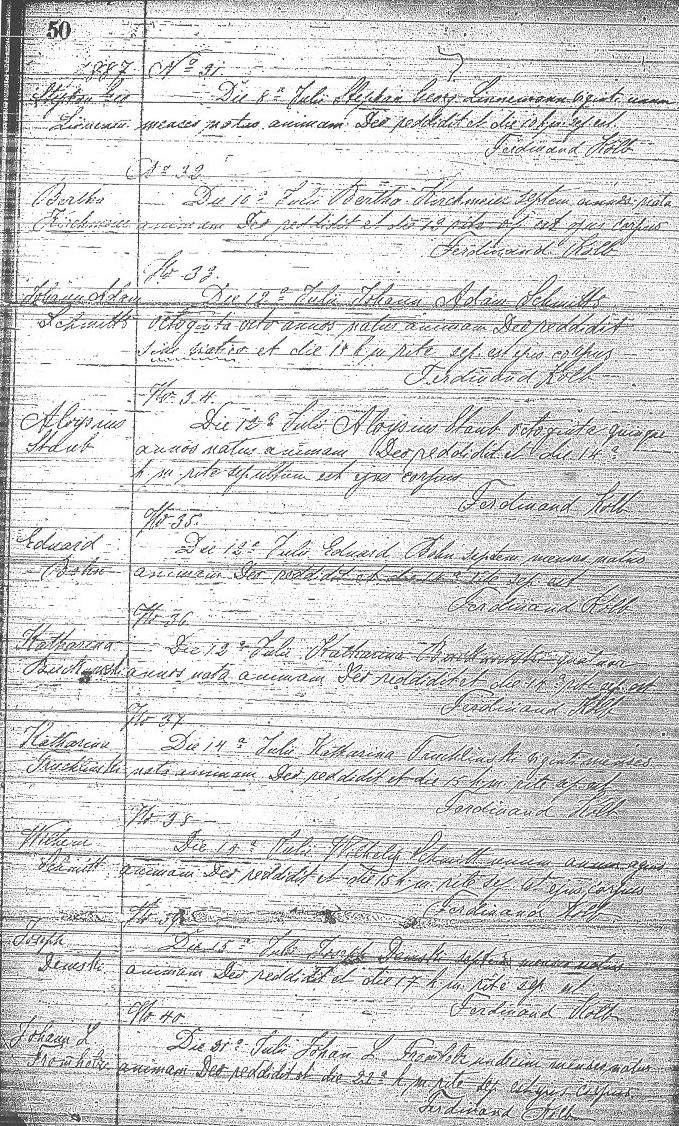 50
1887 No 31
Stephan Geo Die 8a Julii Stephan Georg Linnemann viginti unum
Linneman menses natus animam Deo reddidit et die 10 h. m. sep. est
Ferdinand Kolb
No 32
Bertha Die 10a Julii Bertha Kirchmeier septem annos nata
Kirchmeier animam Deo reddidit et die 12 rite sep. est ejus corpus
Ferdinand Kolb
No 33
Johann Adam Die 12a Julii Johann Adam Schmitts
Schmitts octoginta octo annos natus animam Deo reddidit
sine viatico et die 15 h. m. rite sep. est ejus corpus
Ferdinand Kolb
No 34
Aloysius Die 12a Julii Aloysius Staub octoginta quinque
Staub annos natus animam Deo reddidit et die 14a
h. m. rite sepultum est ejus corpus
Ferdinand Kolb
No 35.
Eduard Die 12a Julii Eduard Bohn septem menses natus
Bohn animam Deo reddidit et die rite sep. est
Ferdinand Kolb
No 36
Katharina Die 12a Julii Katharina quatuor
annos nata animam Deo reddidit et die 14 rite sep. est
Ferdinand Kolb
No 37
Katharina Die 14a Julii Katharina Truchlinski viginti menses
Truchlinski nata animam Deo reddidit et die 15 h. m. rite sep. est
Ferdinand Kolb
No 38
Wilhelm Die 14a Julii Wilhelm Schmitt unum annum agens
Schmitt animam Deo reddidit et die 15 h. m. rite sep. est ejus corpus
Ferdinand Kolb
No 39
Joseph Die 15a Julii Joseph Demski septem menses natus
Demski animam Deo reddidit et die 17 h. m. rite sep. est
Ferdinand Kolb
No 40
Johann L. Die 21a Julii Johann L. Fromholz undecim menses natus
Fromholz animam Deo reddidit et die 22a h. m. rite sep. est ejus corpus
Ferdinand Kolb